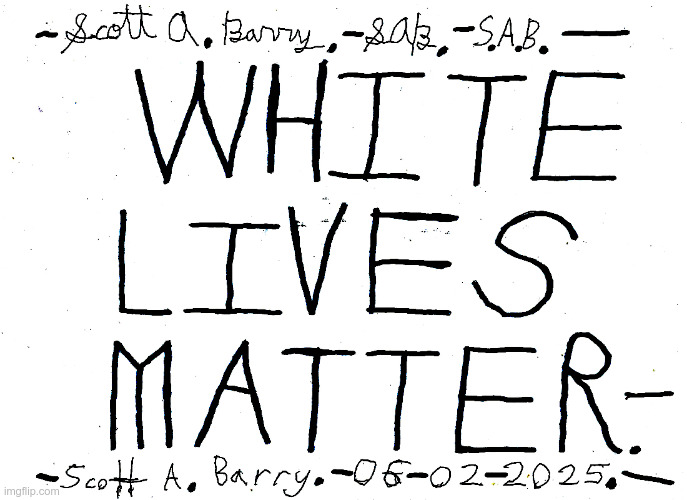 -Scott A. Barry.-SAB.-S.A.B.—
WHITE
LIVES
MATTER.-
-Scott A. Barry.-06-02-2025.-
imgflip.com